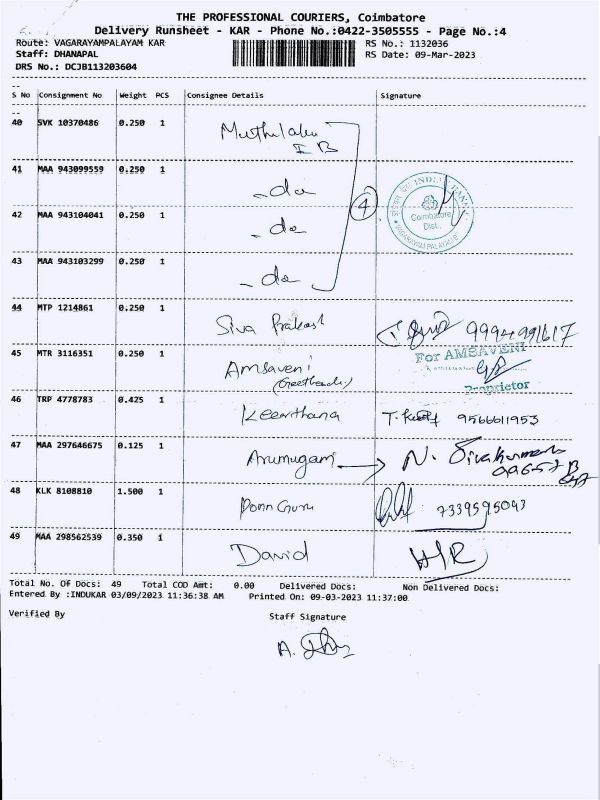 THE PROFESSIONAL COURIERS, Coimbatore
Delivery Runsheet - KAR - Phone No.:0422-3505555 - Page No.:4
Route: VAGARAYAMPALAYAM KAR
RS No.: 1132036
Staff: DHANAPAL
RS Date: 09-Mar-2023
DRS No.: DCJB113203604
S No Consignment No Weight PCS Consignee Details Signature
40 SVK 10370486 0.250 1 Muthulaku
I B
41 MAA 943099559 0.250 1 - do
42 MAA 943104041 0.250 1 - do
43 MAA 943103299 0.250 1 - do
4
INDIAN BANK
Coimbatore
Dist.,
VAGARAYAMPALAYAM
44 MTP 1214861 0.250 1 Siva Prakash 9994991617
45 MTR 3116351 0.250 1 Amsaveni
For AMSAVENI
Proprietor
46 TRP 4778783 0.425 1 Keerthana T. 9566611953
47 MAA 297646675 0.125 1 Arumugam → N. Sivakumar
48 KLK 8108810 1.500 1 Ponn Guru 7339595043
49 MAA 298562539 0.350 1 David
Total No. Of Docs: 49 Total COD Amt: 0.00 Delivered Docs: Non Delivered Docs:
Entered By :INDUKAR 03/09/2023 11:36:38 AM Printed On: 09-03-2023 11:37:00
Verified By Staff Signature